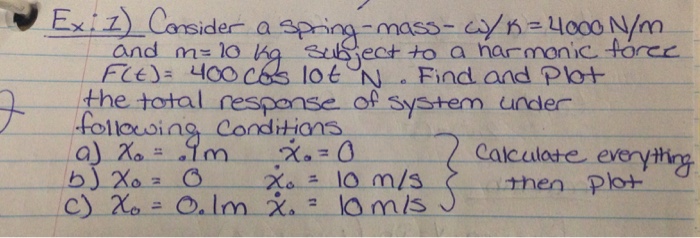 Ex: 1) Consider a spring-mass- w/ K = 4000 N/m
and m = 10 kg subject to a harmonic force
F(t) = 400 cos 10t N . Find and Plot
the total response of system under
following conditions
a) X₀ = .1m ẋ₀ = 0
b) X₀ = 0 ẋ₀ = 10 m/s
c) X₀ = 0.1m ẋ₀ = 10 m/s
Calculate everything
then plot